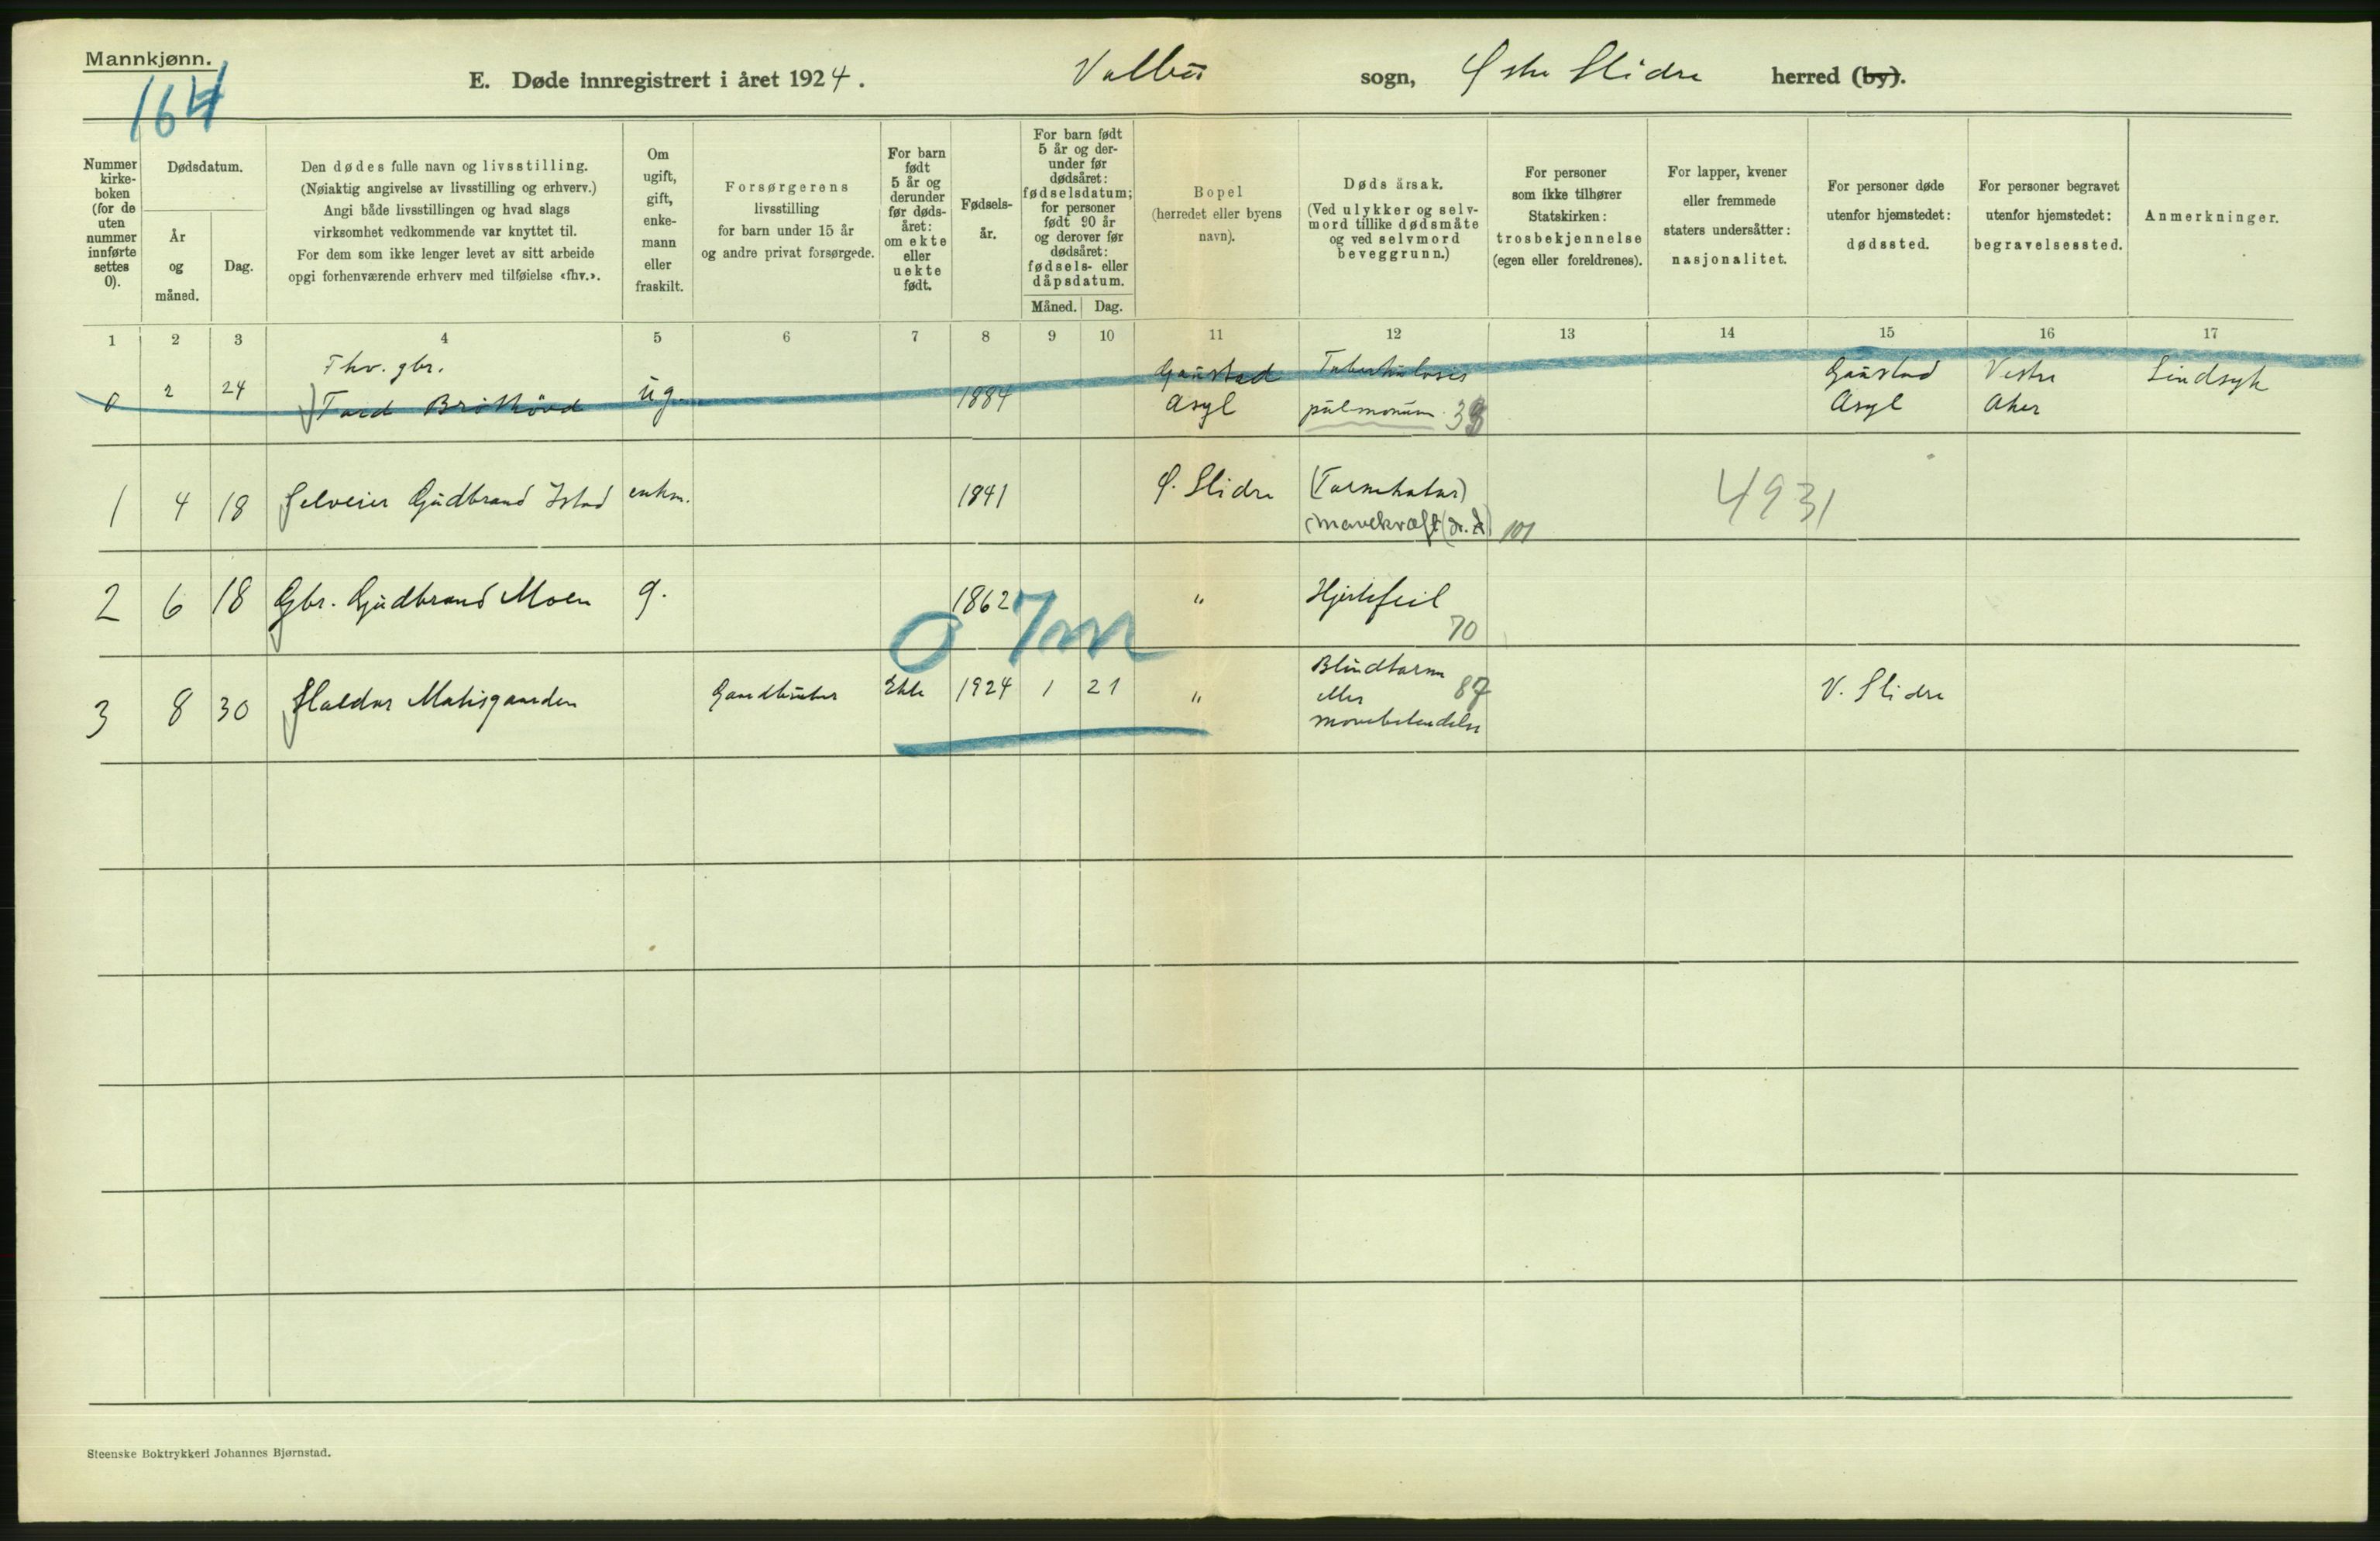 Mannkjønn.
164
E. Døde innregistrert i året 1924. Volbu sogn, Østre Slidre herred (by).
Nummer kirke-boken (for de uten nummer innførte settes 0).
Dødsdatum.
År og måned.
Dag.
Den dødes fulle navn og livsstilling.
(Nøiaktig angivelse av livsstilling og erhverv.)
Angi både livsstillingen og hvad slags
virksomhet vedkommende var knyttet til.
For dem som ikke lenger levet av sitt arbeide
opgi forhenværende erhverv med tilføielse «fhv.».
Om ugift, gift, enke-mann eller fraskilt.
Forsørgerens
livsstilling
for barn under 15 år
og andre privat forsørgede.
For barn født 5 år og derunder før døds-året: om ekte eller uekte født.
Fødsels-år.
For barn født 5 år og der-under før dødsåret: fødselsdatum; for personer født 90 år og derover før dødsåret: fødsels- eller dåpsdatum.
Måned. Dag.
Bopel
(herredet eller byens
navn).
Døds årsak.
(Ved ulykker og selv-
mord tillike dødsmåte
og ved selvmord
beveggrunn.)
For personer
som ikke tilhører
Statskirken:
trosbekjennelse
(egen eller foreldrenes).
For lapper, kvener
eller fremmede
staters undersåtter:
nasjonalitet.
For personer døde
utenfor hjemstedet:
dødssted.
For personer begravet
utenfor hjemstedet:
begravelsessted.
Anmerkninger.
1 2 3 4 5 6 7 8 9 10 11 12 13 14 15 16 17
Fhv. gbr. Gaustad Tuberkulosis Gaustad Vestre Sindsyk
0 2 24 Tord ug. 1884 Asyl pulmonum Asyl Aker
1 4 18 Selveier Gudbrand Istad enkm. 1841 Ø. Slidre (Tarmkatar) 4931
(Mavekræft (dr. A) 101
2 6 18 Gbr. Gudbrand Moen g. 1862 " Hjertefeil
70
0 7m
3 8 30 Haldor Matisgaarden Gaardbruker Ekte 1924 1 21 " Blindtarm V. Slidre
eller 87
mavebetendelse
Steenske Boktrykkeri Johannes Bjørnstad.